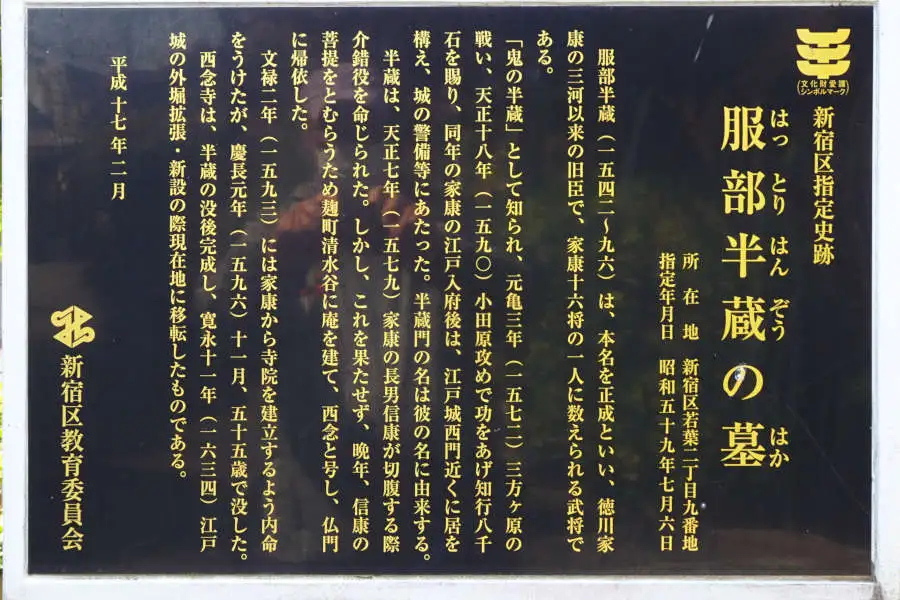 文化財愛護
シンボルマーク
新宿区指定史跡
はっとりはんぞうはか
服部半蔵の墓
所在地 新宿区若葉二丁目九番地
指定年月日 昭和五十九年七月六日
服部半蔵（一五四二～九六）は、本名を正成といい、徳川家
康の三河以来の旧臣で、家康十六将の一人に数えられる武将で
ある。
「鬼の半蔵」として知られ、元亀三年（一五七二）三方ヶ原の
戦い、天正十八年（一五九〇）小田原攻めで功をあげ知行八千
石を賜り、同年の家康の江戸入府後は、江戸城西門近くに居を
構え、城の警備等にあたった。半蔵門の名は彼の名に由来する。
半蔵は、天正七年（一五七九）家康の長男信康が切腹する際
介錯役を命じられた。しかし、これを果たせず、晩年、信康の
菩提をとむらうため麹町清水谷に庵を建て、西念と号し、仏門
に帰依した。
文禄二年（一五九三）には家康から寺院を建立するよう内命
をうけたが、慶長元年（一五九六）十一月、五十五歳で没した。
西念寺は、半蔵の没後完成し、寛永十一年（一六三四）江戸
城の外堀拡張・新設の際現在地に移転したものである。
平成十七年二月
新宿区教育委員会